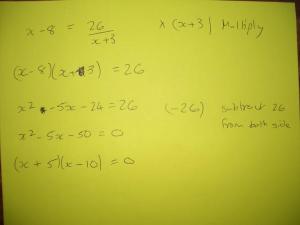 x - 8 = 26/(x+3) × (x+3) Multiply
(x-8)(x+3) = 26
x² - 5x - 24 = 26 (-26) subtract 26
from both side
x² - 5x - 50 = 0
(x + 5)(x - 10) = 0